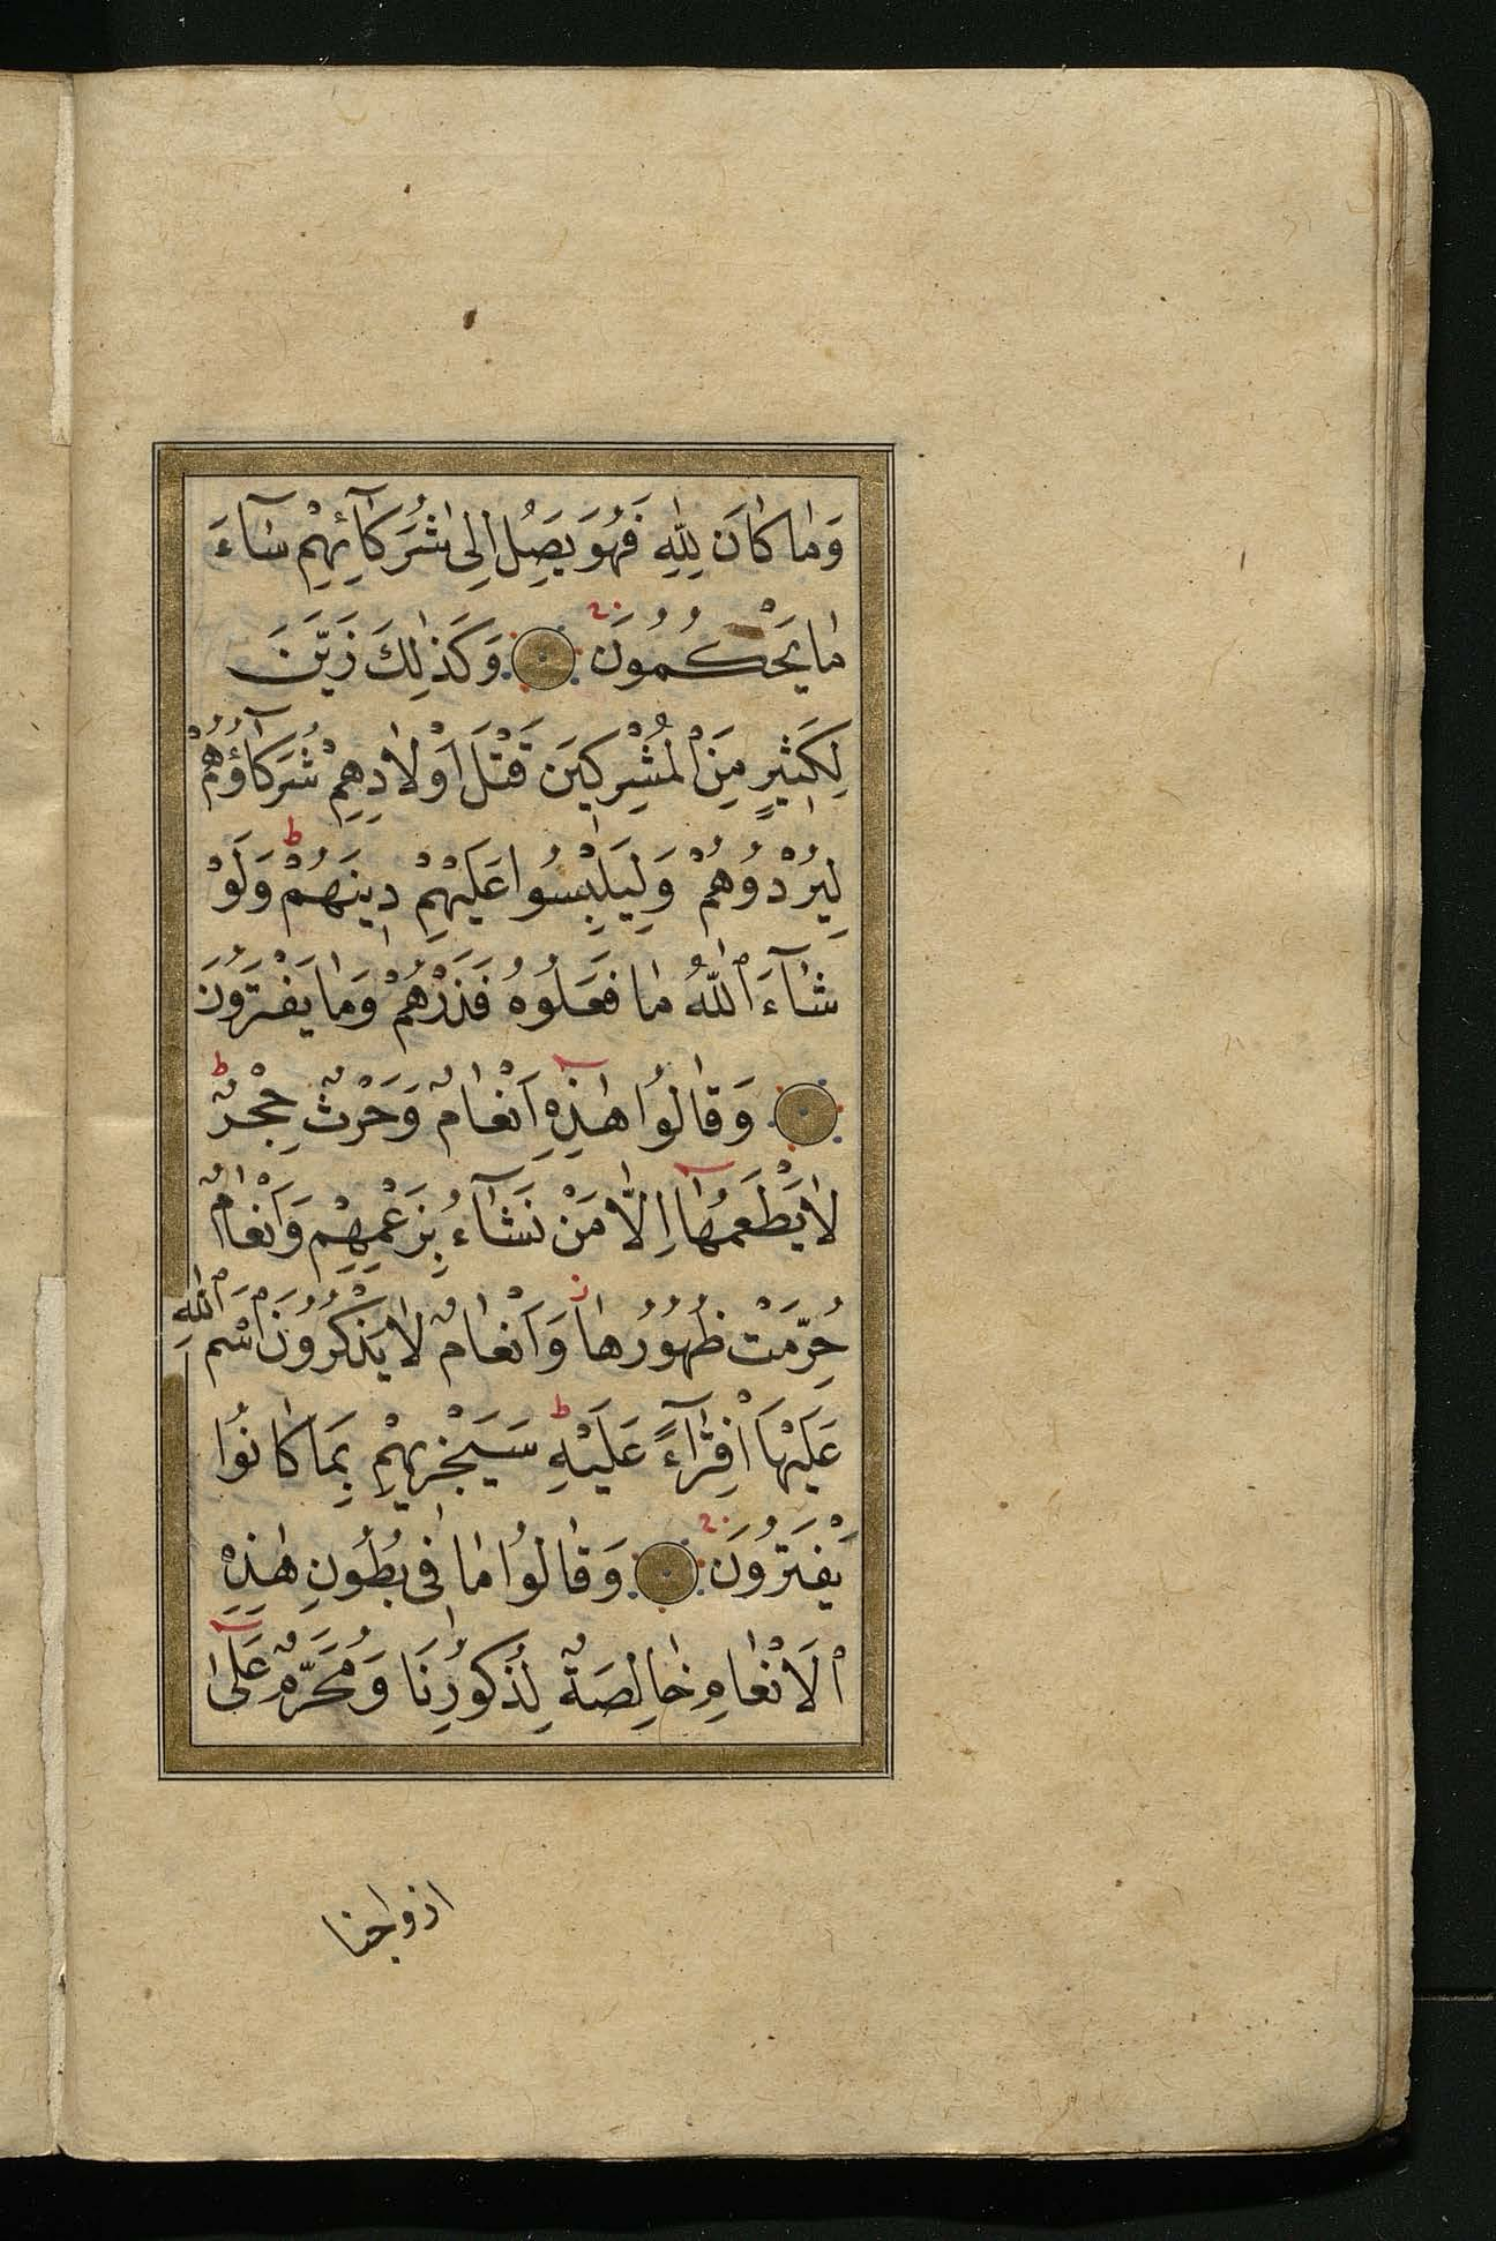 وَمٰا كٰانَ لِلّٰهِ فَهُوَ يَصِلُ اِلٰى شُرَكَآئِهِمْ سَآءَ
مٰا يَحْكُمُونَ وَكَذٰلِكَ زَيَّنَ
لِكَثٖيرٍ مِنَ الْمُشْرِكٖينَ قَتْلَ اَوْلٰادِهِمْ شُرَكَآؤُهُمْ
لِيُرْدُوُهُمْ وَلِيَلْبِسُوا عَلَيْهِمْ دٖينَهُمْ ط وَلَوْ
شٰآءَ ٱللّٰهُ مٰا فَعَلُوُهُ فَذَرْهُمْ وَمٰا يَفْتَرُونَ
وَقٰالُوُا هٰذِهٖٓ اَنْعٰامٌ وَحَرْثٌ حِجْرٌ ط
لٰا يَطْعَمُهٰٓا اِلّٰا مَنْ نَشٰآءُ بِزَعْمِهِمْ وَاَنْعٰامٌ
حُرِّمَتْ ظُهُوُرُهٰا ز وَاَنْعٰامٌ لٰا يَذْكُرُوُنَ ٱسْمَ ٱللّٰهِ
عَلَيْهَا ٱفْتِرٰآءً عَلَيْهِ ط سَيَجْزٖيهِمْ بِمَا كٰانُوُا
يَفْتَرُوُنَ وَقٰالُوُا مٰا فٖى بُطُوُنِ هٰذِهِ
ٱلْاَنْعٰامِ خٰالِصَةٌ لِذُكُورِنَا وَمُحَرَّمٌ عَلٰىٓ
ازواجنا